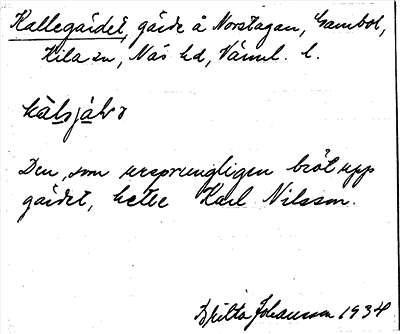 Kallegärdet, gärde å Norstagan, Gambol,
Kila sn, Näs hd, Värml. l.
Den, som ursprungligen bröt upp
gärdet, hette Karl Nilsson.
Britta Johansson 1934